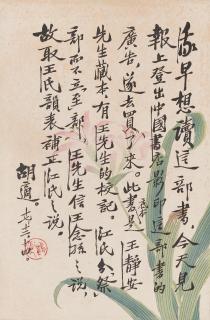 我早想讀這部書，今天見
報上登出中國書店影印這部書的
廣告，遂去買了來。此書是王靜安
先生藏本，有王先生的校記。江氏「祭」
部而不立至部，王先生信王念孫之說，
故取王氏韻表補正江氏之說。
胡適。